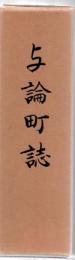 与論町誌